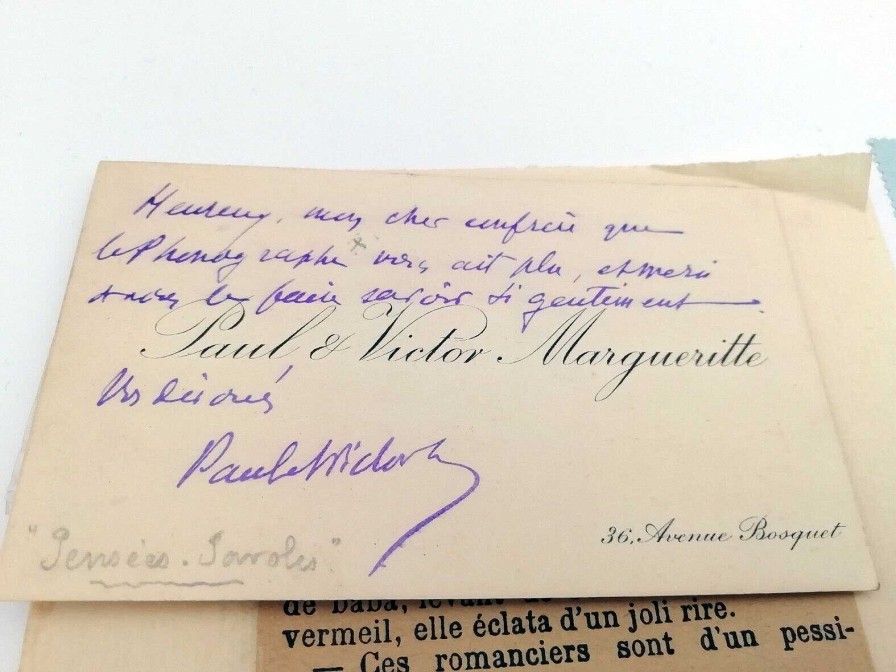 Heureux, mon cher confrère que
le Phonographe vous ait plu, et merci
de nous le faire savoir si gentiment
Paul & Victor Margueritte
Vos dévoués
Paul & Victor
36, Avenue Bosquet
"Pensées. Paroles"
de baba, levant
vermeil, elle éclata d'un joli rire.
— Ces romanciers sont d'un pessi-